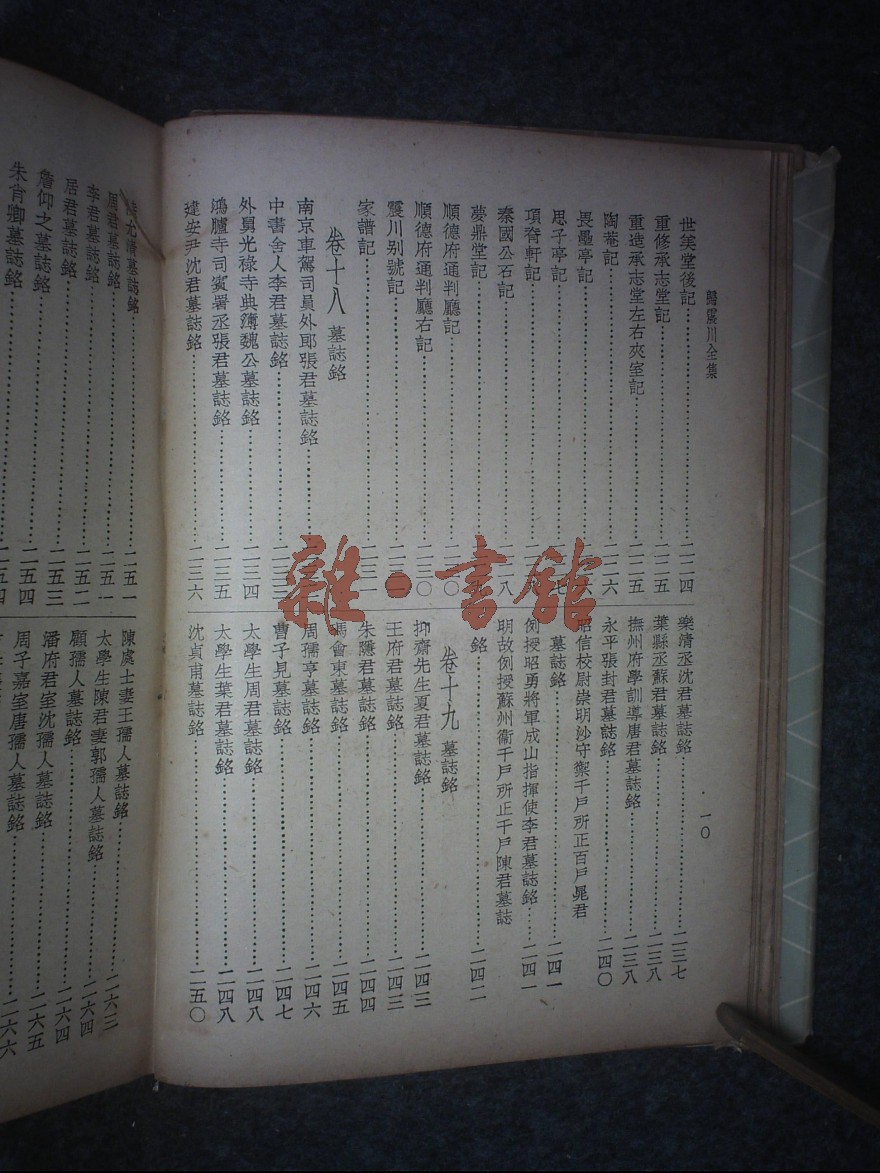 歸震川全集
一〇
世美堂後記……二二四
重修承志堂記……二二五
重造承志堂左右夾室記……二二五
陶菴記……二二六
畏壘亭記……
思子亭記……
項脊軒記……
秦國公石記……二二八
夢鼎堂記……
順德府通判廳記……
順德府通判廳右記……二三〇
震川别號記……
家譜記……二三一
卷十八 墓誌銘
南京車駕司員外郎張君墓誌銘……
中書舍人李君墓誌銘……二三三
外舅光祿寺典簿魏公墓誌銘……二三四
鴻臚寺司賓署丞張君墓誌銘……二三五
建安尹沈君墓誌銘……二三六
樂清丞沈君墓誌銘……二三七
葉縣丞蘇君墓誌銘……二三八
撫州府學訓導唐君墓誌銘……二三八
永平張封君墓誌銘……二四〇
昭信校尉崇明沙守禦千戶所正百戶晁君
墓誌銘……二四一
例授昭勇將軍成山指揮使李君墓誌銘……二四一
明故例授蘇州衞千戶所正千戶陳君墓誌
銘……二四二
卷十九 墓誌銘
抑齋先生夏君墓誌銘……二四三
王府君墓誌銘……二四三
朱隱君墓誌銘……二四四
馮會東墓誌銘……二四五
周孺亨墓誌銘……二四六
曹子見墓誌銘……二四七
太學生周君墓誌銘……二四八
太學生葉君墓誌銘……二四八
沈貞甫墓誌銘……二五〇
允清墓誌銘……二五一
周君墓誌銘……二五一
李君墓誌銘……二五二
居君墓誌銘……二五三
詹仰之墓誌銘……二五四
朱肖卿墓誌銘……二五四
陳處士妻王孺人墓誌銘……二六三
太學生陳君妻郭孺人墓誌銘……二六四
顧孺人墓誌銘……二六四
潘府君室沈孺人墓誌銘……二六五
周子嘉室唐孺人墓誌銘……二六六
雜·書館